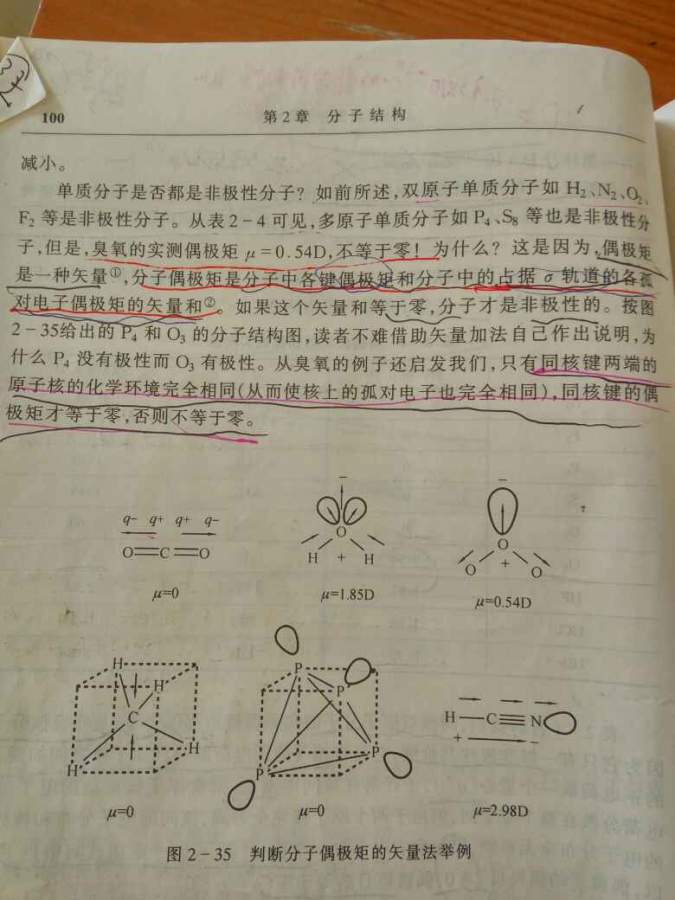 100
第2章 分子结构
减小。
单质分子是否都是非极性分子？如前所述,双原子单质分子如 H₂、N₂、O₂、
F₂ 等是非极性分子。从表2-4可见,多原子单质分子如 P₄、S₈ 等也是非极性分
子,但是,臭氧的实测偶极矩 μ=0.54D,不等于零！为什么？这是因为,偶极矩
是一种矢量①,分子偶极矩是分子中各键偶极矩和分子中的占据 σ 轨道的各孤
对电子偶极矩的矢量和②。如果这个矢量和等于零,分子才是非极性的。按图
2-35给出的 P₄ 和 O₃ 的分子结构图,读者不难借助矢量加法自己作出说明,为
什么 P₄ 没有极性而 O₃ 有极性。从臭氧的例子还启发我们,只有同核键两端的
原子核的化学环境完全相同(从而使核上的孤对电子也完全相同),同核键的偶
极矩才等于零,否则不等于零。
q- q+ q+ q-
O=C=O
μ=0
-
O
H + H
μ=1.85D
-
O
O + O
μ=0.54D
H
H
C
H
H
μ=0
P
P
P
P
μ=0
H—C≡N
+ -
μ=2.98D
图 2-35 判断分子偶极矩的矢量法举例